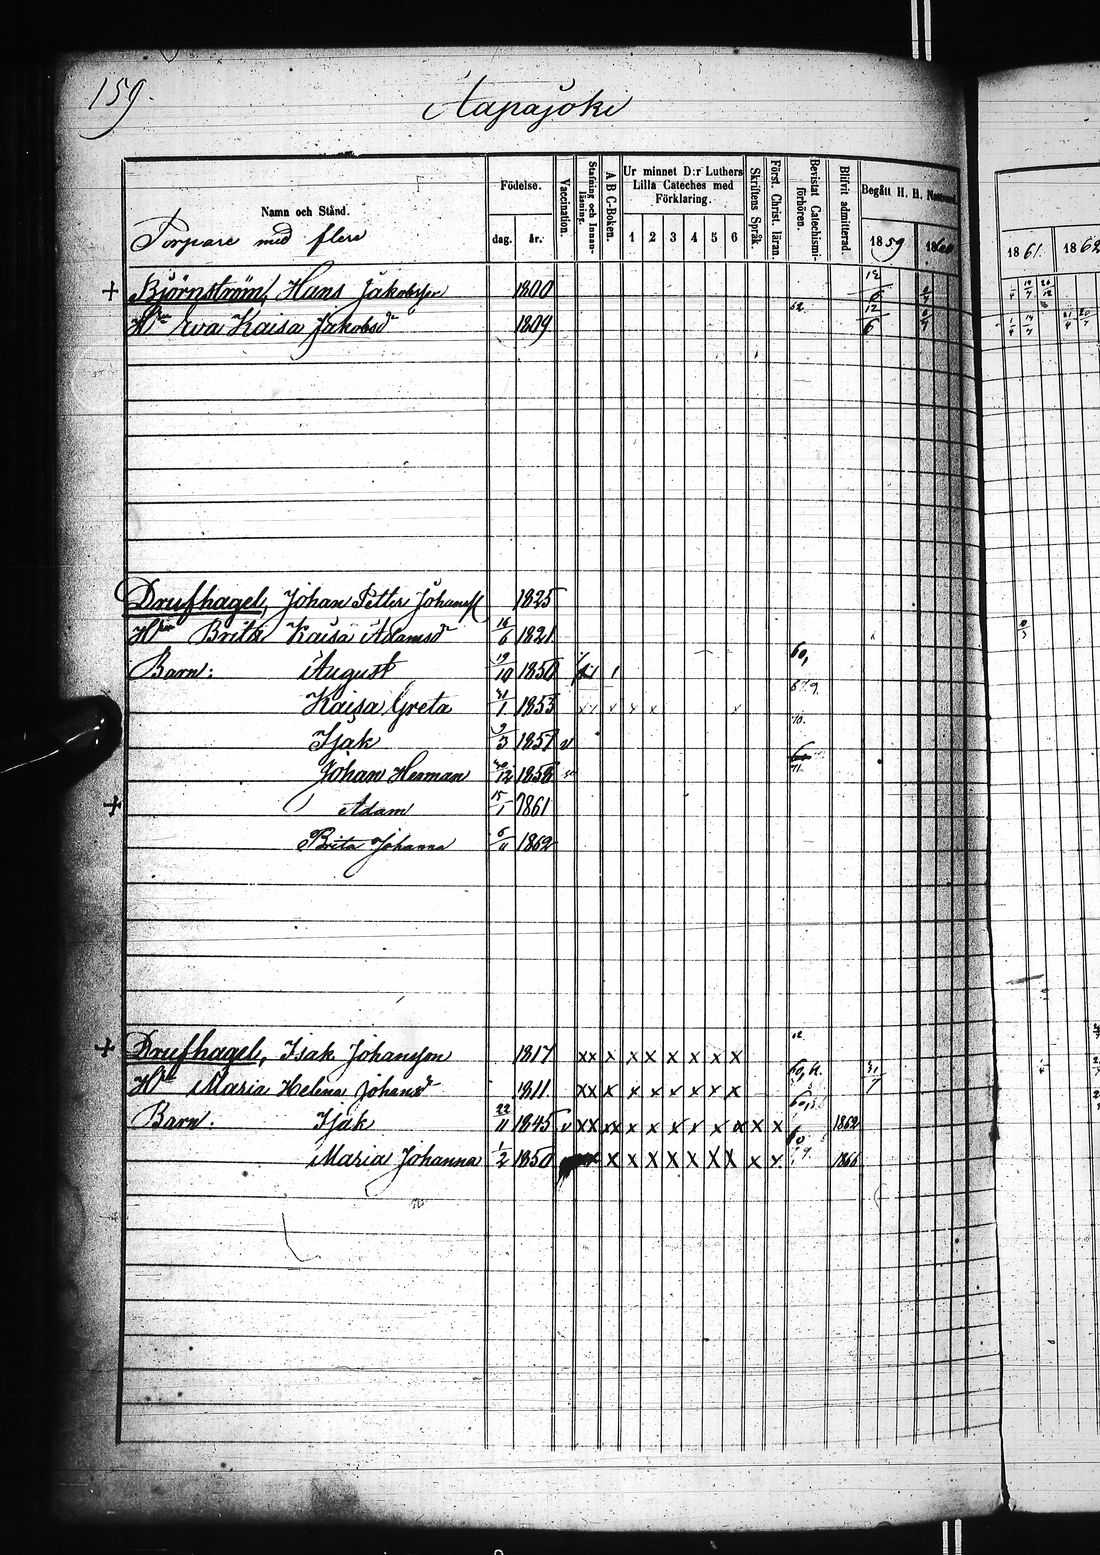 159.
Aapajoki
Namn och Stånd.
Torpare med flere
Födelse.
dag. år.
Vaccination.
Stafning och Innanläsning.
A B C-Boken.
Ur minnet D:r Luthers
Lilla Cateches med
Förklaring.
1 2 3 4 5 6
Skriftens Språk.
Först. Christ. läran.
Bevistat Catechismiförhören.
Blifvit admitterad.
Begått H. H. Nattvard.
1859 1860
1861. 1862
+ Björnström, Hans Jakobsson 1800 12/6
Hru Eva Kaisa Jakobsd 1809 12/6
Drufhagel, Johan Petter Johanss 1825
Hru Brita Kaisa Adamsd 16/6 1821
Barn: August 19/10 1850 60,
Kaisa Greta 21/1 1853
Isak 9/3 1857 v
Johan Herman 20/12 1858 71.
+ Adam 15/1 1861
Brita Johanna 5/11 1862
+ Drufhagel, Isak Johansson 1817 xx x x x x x x x
Hu Maria Helena Johansd 1811. xx x x x x x x x 31/7
Barn. Isak 22/11 1845 v xx xx x x x x x x x x 1862
Maria Johanna 1/2 1850 x x x x x x x x x 1866